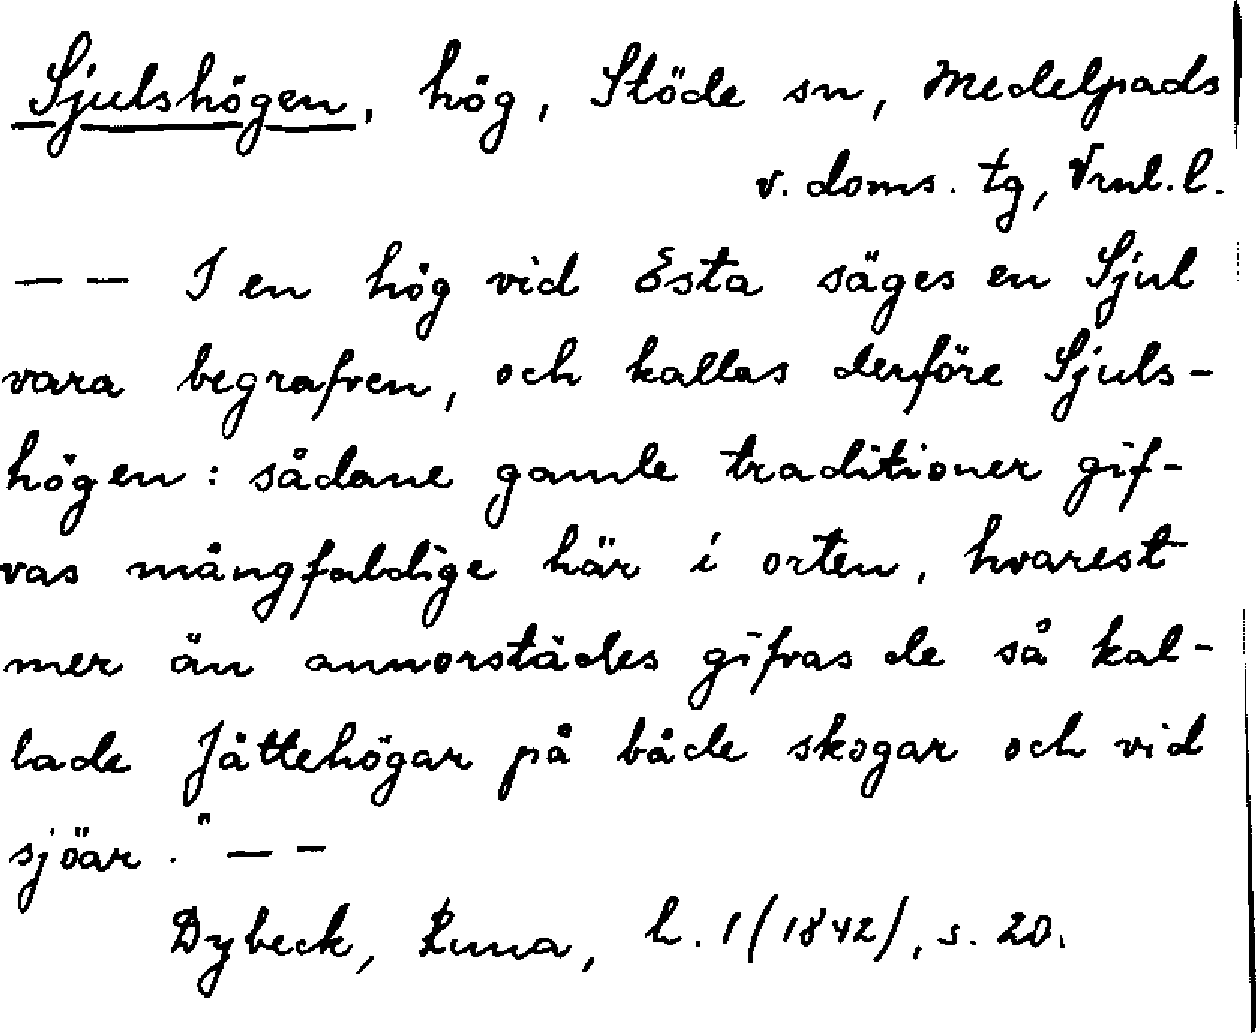 Sjulshögen, hög, Stöde sn, Medelpads
v. doms. tg, Vrnl. l.
— — I en hög vid Esta säges en Sjul
vara begrafven, och kallas derföre Sjuls-
högen: sådane gamle traditioner gif-
vas mångfaldige här i orten, hvarest
mer än annorstädes gifvas de så kal-
lade Jättehögar på både skogar och vid
sjöar." — —
Dybeck, Runa, h. 1 (1842), s. 20.